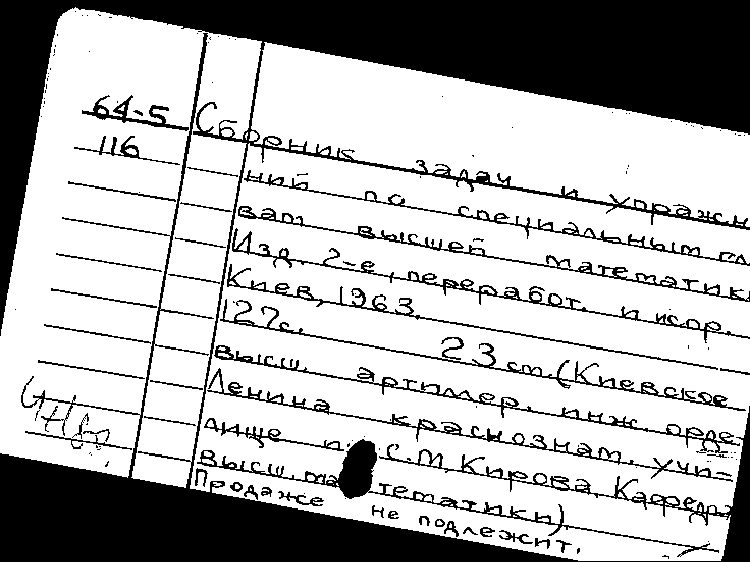 64-5 Сборник задач и упражн
116
ний по специальным гл
вам высшей математики
Изд. 2-е, переработ. и испр.
Киев, 1963.
127с. 23 см. (Киевское
высш. артиллер. инж. орде-
Ленина краснознам. учи=
лище С.М. Кирова. Кафедра
высш. математики).
Продаже не подлежит.